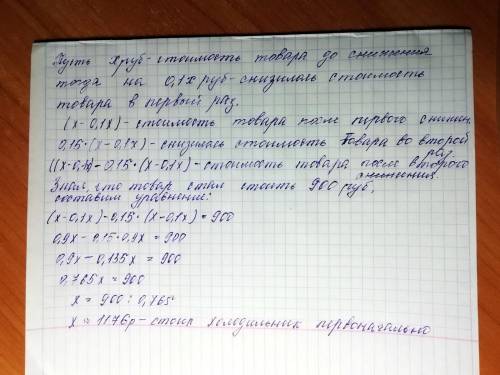 Пусть х руб - стоимость товара до снижения
тогда на 0,1х руб - снизилась стоимость
товара в первый раз.
(х-0,1х) - стоимость товара после первого снижен.
0,15·(х-0,1х) - снизилась стоимость товара во второй
раз.
((х-0,1х)-0,15·(х-0,1х) - стоимость товара после второго
снижения.
Зная, что товар стал стоить 900 руб,
составим уравнение:
(х-0,1х)-0,15·(х-0,1х)=900
0,9х-0,15·0,9х=900
0,9х-0,135х=900
0,765х=900
х=900:0,765
х≈1176р - стоил холодильник первоначально